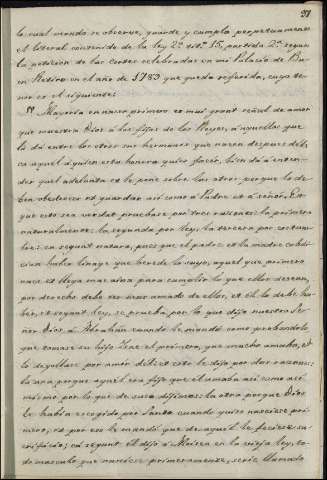 27
la cual mando se observe, guarde y cumpla perpetuamente
el literal contenido de la ley 2ª tit.º 15, partida 2ª segun
la peticion de las Cortes celebradas en mi Palacio de Buen
Retiro en el año de 1789 que queda referida, cuyo te-
nor es el siguiente:
"Mayoria en nascer primero es mui grant señal de amor
que muestra Dios á los fijos de los Reyes, á aquellos que
la dá entre los otros sus hermanos que nacen despues dél:
ca aquel á quien esta honra quier facer, bien dá á enten-
der quel adelanta et le pone sobre los otros porque lo de-
ben obedescer et guardar asi como á Padre et á señor. Et
que esto sea verdat pruebase por tres razones: la primera
naturalmente: la segunda por ley: la tercera por costum-
bre: ca segunt natura, pues que el padre et la madre cobdi-
cian haber linage que herede lo suyo, aquel que primero
nace et llega mas aina para cumplir lo que ellos desean,
por derecho debe ser mas amado de ellos, et él lo debe ha-
ber; et segunt ley, se prueba por lo que dijo nuestro Se-
ñor Dios á Abrahan cuando le mandó como probandolo
que tomase su hijo Isac el primero, que mucho amaba, et
le degollase por amor dél: et esto le dijo por dos razones:
la una porque aquel era fijo que él amaba asi como asi
mismo por lo que de suso dijimos: la otra porque Dios
le habia escogido por santo cuando quiso nasciese pri-
mero; et por eso le mandó que de aquel le feciese sa-
crificio; ca segunt él dijo á Moisen en la vieja ley, to-
do masculo que nasciese primeramente, serie llamado